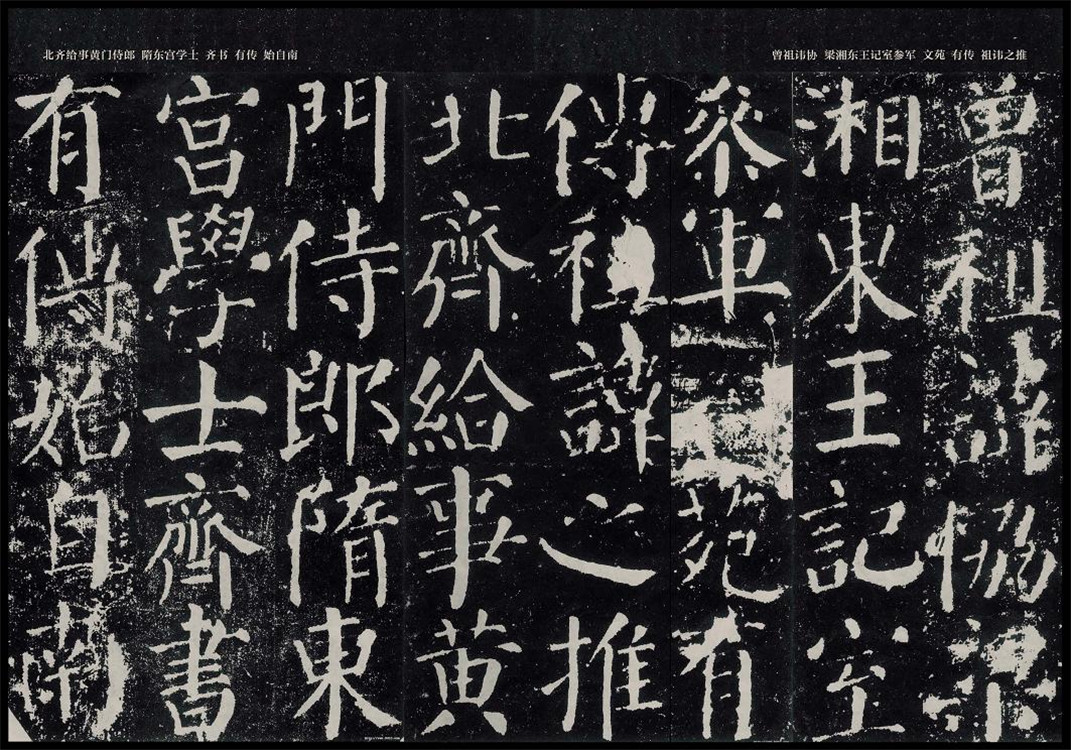 曾祖讳协 梁湘东王记室参军 文苑 有传 祖讳之推
北齐给事黄门侍郎 隋东宫学士 齐书 有传 始自南
曾祖諱恊梁
湘東王記室
參軍苑有
傳祖諱之推
北齊給事黃
門侍郎隋東
宮學士齊書
有傳始自南